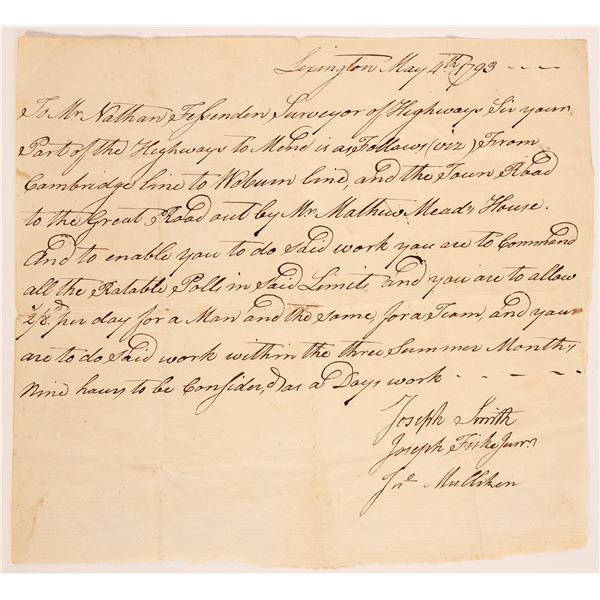 Lexington May 4th 1793 - - - -
To Mr. Nathan Fessenden Surveyor of Highways Sir your
Part of the Highways to Mend is as Follows (viz) From
Cambridge line to Woburn line, and the Town Road
to the Great Road out by Mr. Mathew Mead,s House.
And to enable you to do said work you are to Command
all the Ratable Polls in said Limits, and you are to allow
2s/8d per day for a Man and the same for a Team, and your
are to do said work within the three Summer Month,s
Nine hours to be Consider,d as a Days work - - - - -
Joseph Smith
Joseph Fiske Junr.
Jno Mulliken